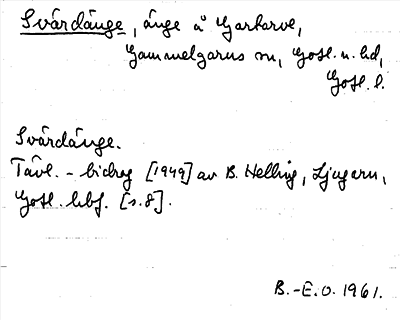 Svärdänge, änge å Gartarve,
Gammelgarns sn, Gotl. n. hd,
Gotl. l.
Svärdänge.
Tävl.-bidrag [1949] av B. Helling, Ljugarn,
Gotl. hbf. [s.8].
B.-E.O. 1961.